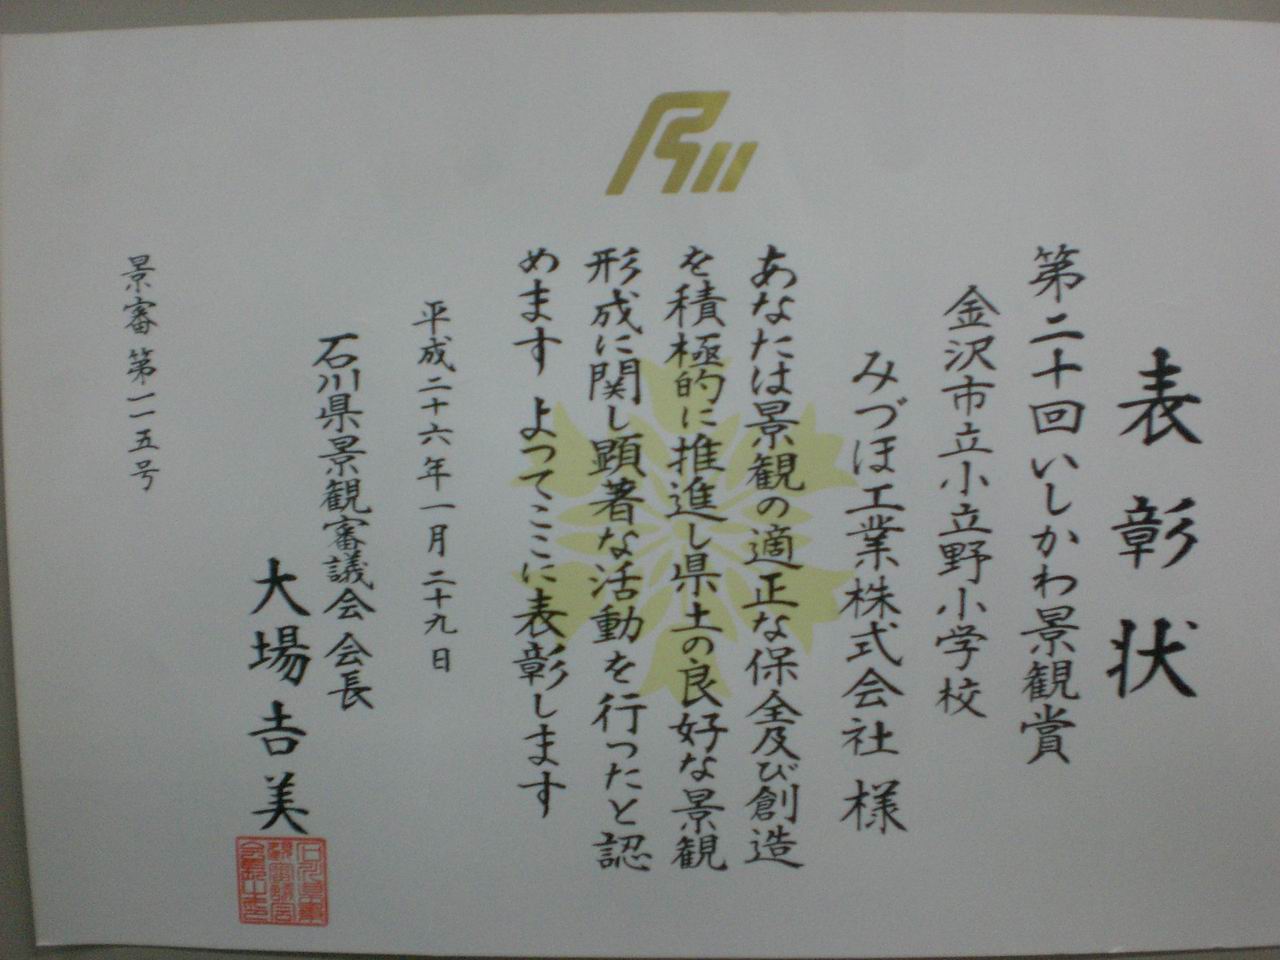 表彰状
第二十回いしかわ景観賞
金沢市立小立野小学校
みづほ工業株式会社 様
あなたは景観の適正な保全及び創造
を積極的に推進し県土の良好な景観
形成に関し顕著な活動を行ったと認
めます よってここに表彰します
平成二十六年一月二十九日
石川県景観審議会 会長
大場吉美
景審第一一五号